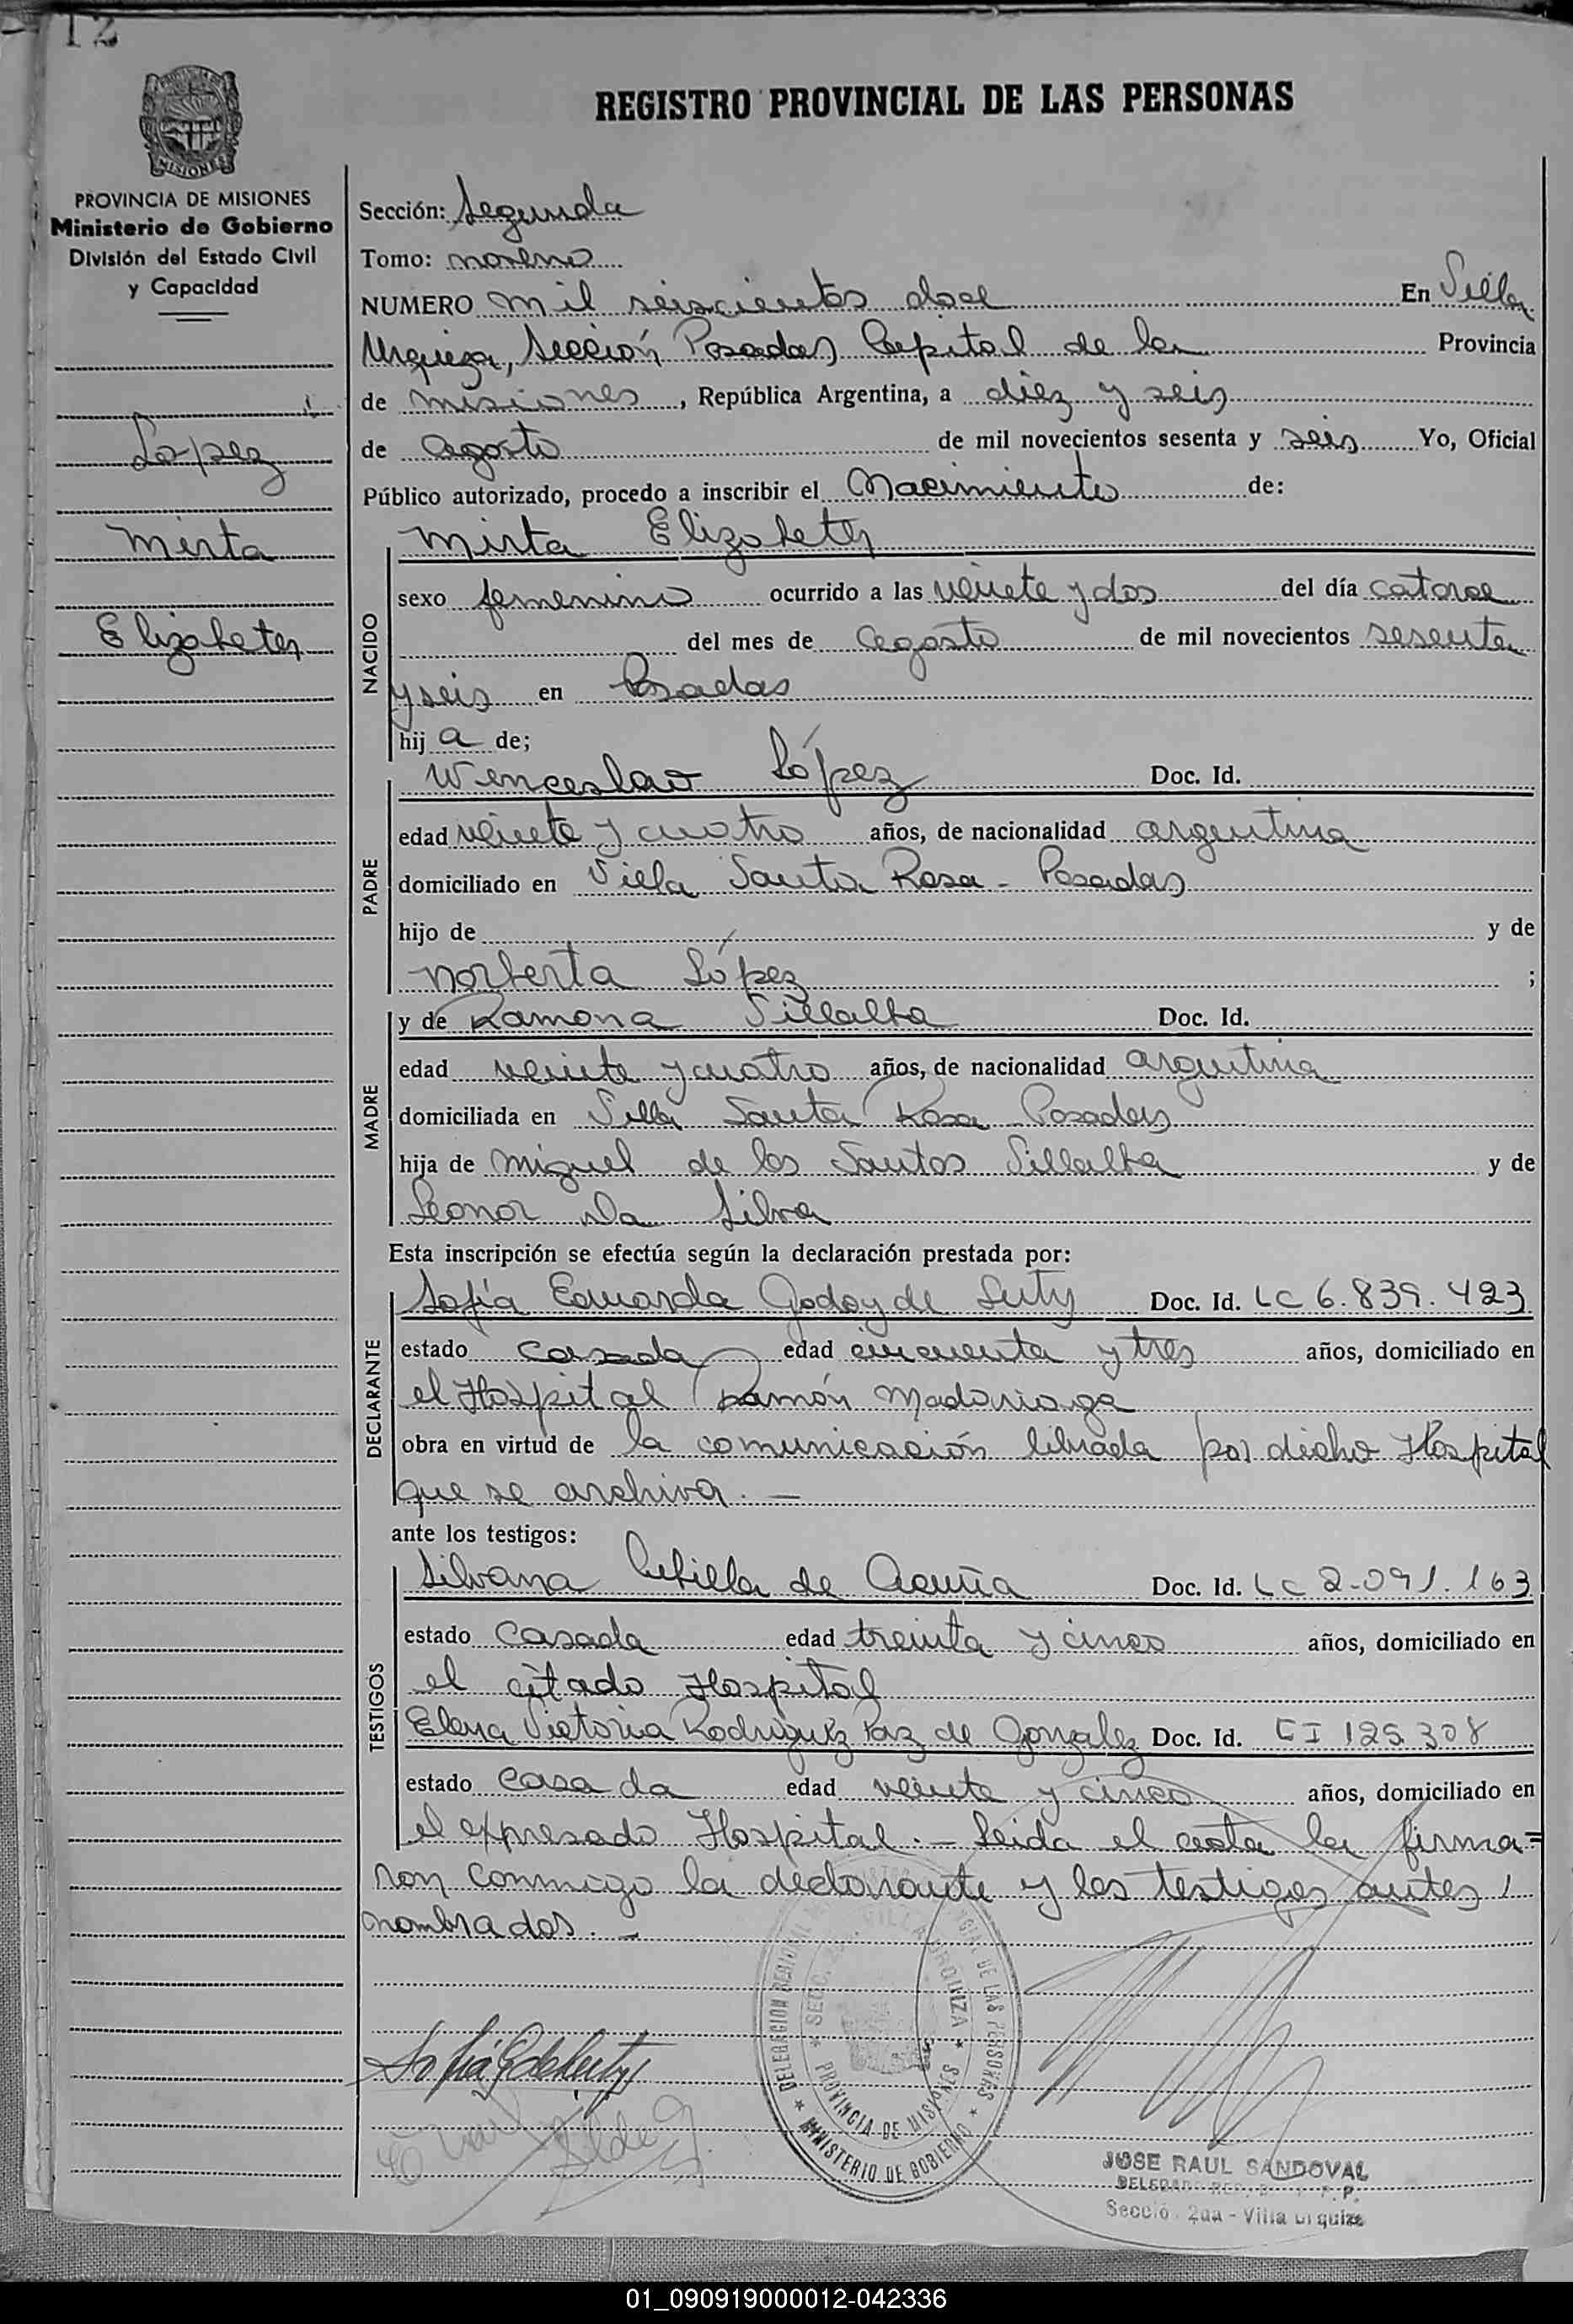 12
MISIONES
PROVINCIA DE MISIONES
Ministerio de Gobierno
División del Estado Civil
y Capacidad
Lopez
Mirta
Elizabeth
REGISTRO PROVINCIAL DE LAS PERSONAS
Sección: Segunda
Tomo: noveno
NUMERO mil seiscientos doce En Villa
Urquiza, Sección Posadas Capital de la Provincia
de misiones, República Argentina, a diez y seis
de agosto de mil novecientos sesenta y seis Yo, Oficial
Público autorizado, procedo a inscribir el Nacimiento de:
NACIDO
Mirta Elizabeth
sexo femenino ocurrido a las veinte y dos del día catorce
del mes de agosto de mil novecientos sesenta
y seis en Posadas
hij a de;
PADRE
Wenceslao López Doc. Id.
edad veinte y cuatro años, de nacionalidad argentina
domiciliado en Villa Santa Rosa - Posadas
hijo de y de
Norberta López ;
MADRE
y de Ramona Villalba Doc. Id.
edad veinte y cuatro años, de nacionalidad argentina
domiciliada en Villa Santa Rosa Posadas
hija de Miguel de los Santos Villalba y de
Leonor Da Silva
Esta inscripción se efectúa según la declaración prestada por:
DECLARANTE
Sofía Eduarda Godoy de Doc. Id. LC 6.839.423
estado casada edad cincuenta y tres años, domiciliado en
el Hospital Ramón Madariaga
obra en virtud de la comunicación librada por dicho Hospital
que se archiva. —
ante los testigos:
TESTIGOS
Silvana de Acuña Doc. Id. LC 2.091.163
estado casada edad treinta y cinco años, domiciliado en
el citado Hospital
Elena Victoria Rodríguez Paz de Gonzalez Doc. Id. CI 125.308
estado casada edad veinte y cinco años, domiciliado en
el expresado Hospital. — Leida el acta la firma=
ron conmigo la declarante y los testigos antes
nombrados. —
DELEGACION REGIONAL DE LAS PERSONAS
SECC. VILLA URQUIZA
PROVINCIA DE MISIONES
MINISTERIO DE GOBIERNO
JOSE RAUL SANDOVAL
Secció 2da - Villa Urquiza
01_090919000012-042336